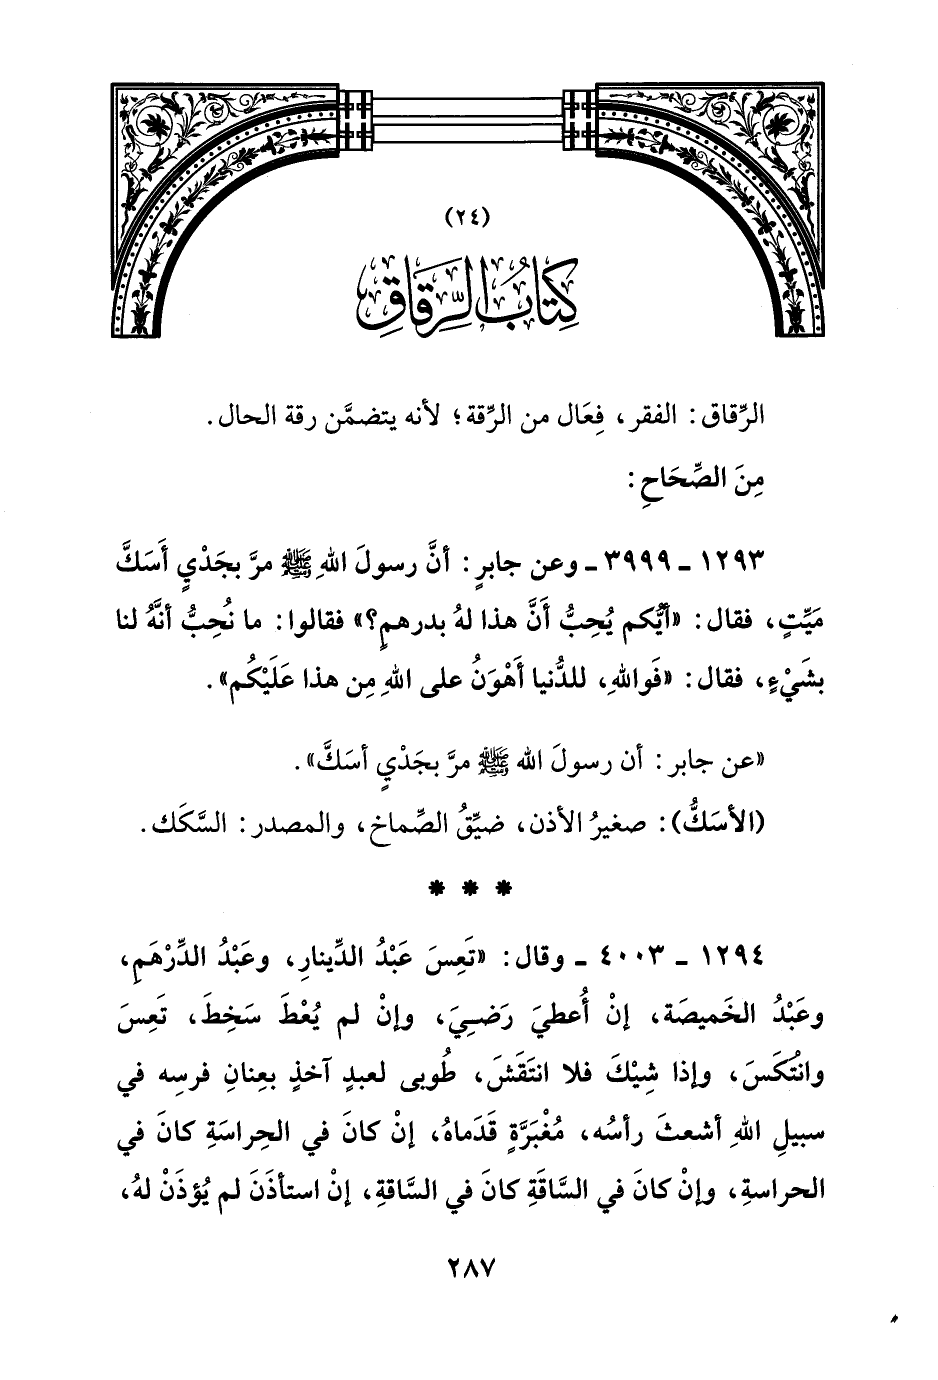 (٢٤)
كِتَابُ الرِّقَاقِ
الرِّقاق: الفقر، فِعَال من الرِّقة؛ لأنه يتضمَّن رقة الحال.
مِنَ الصِّحَاحِ:
١٢٩٣ - ٣٩٩٩ - وعن جابرٍ: أنَّ رسولَ اللهِ ﷺ مرَّ بجَدْيٍ أَسَكَّ
مَيِّتٍ، فقال: «أيُّكم يُحِبُّ أَنَّ هذا لهُ بدرهمٍ؟» فقالوا: ما نُحِبُّ أنَّهُ لنا
بشَيْءٍ، فقال: «فَواللهِ، للدُّنيا أَهْوَنُ على اللهِ مِن هذا عَلَيْكُم».
«عن جابر: أن رسولَ الله ﷺ مرَّ بجَدْيٍ أسَكَّ».
(الأسَكُّ): صغيرُ الأذن، ضيِّقُ الصِّماخ، والمصدر: السَّكَك.
* * *
١٢٩٤ - ٤٠٠٣ - وقال: «تَعِسَ عَبْدُ الدِّينارِ، وعَبْدُ الدِّرْهَمِ،
وعَبْدُ الخَميصَة، إنْ أُعطيَ رَضـِيَ، وإنْ لم يُعْطَ سَخِطَ، تَعِسَ
وانْتُكَسَ، وإذا شِيْكَ فلا انتَقَشَ، طُوبى لعبدٍ آخذٍ بعِنانِ فرسِه في
سبيلِ اللهِ أشعثَ رأسُه، مُغْبَرَّةٍ قَدَماهُ، إنْ كانَ في الحِراسَةِ كانَ في
الحراسةِ، وإنْ كانَ في السَّاقَةِ كانَ في السَّاقةِ، إنْ استأذَنَ لم يُؤذَنْ لهُ،
٢٨٧